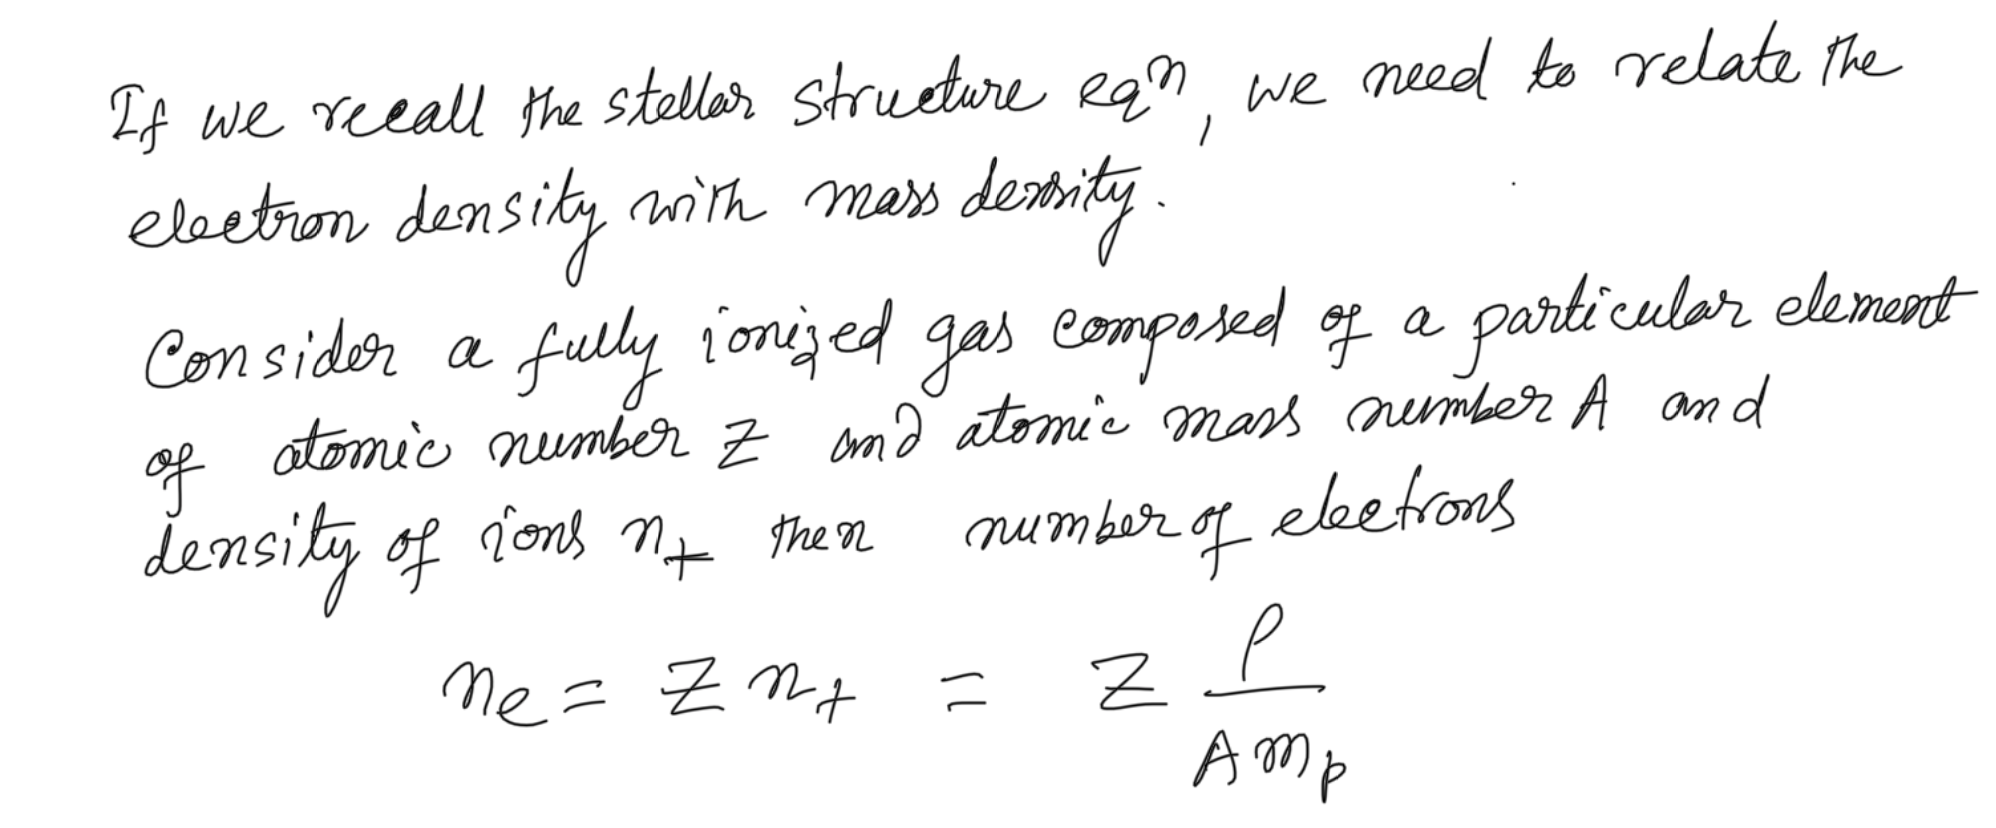 If we recall the stellar structure eqⁿ, we need to relate the
electron density with mass density.
Consider a fully ionized gas composed of a particular element
of atomic number Z and atomic mass number A and
density of ions n₊ then number of electrons
nₑ = Z n₊ = Z ρ / A mₚ